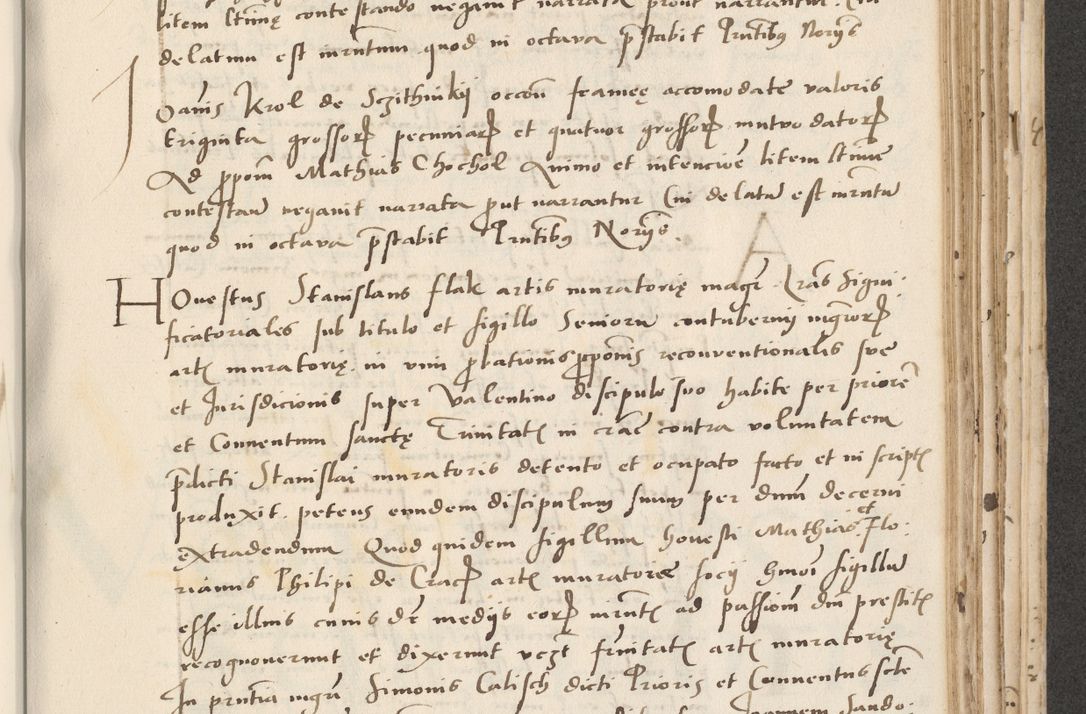 litem stīnę contestando negavit narrata prout narrantur Cui
delatum est iurntum quod in octava p̄stabit Prntibus Norys
Joānis Krol de Sczithniky occōn frameę accomodate valoris
triginta grossorꝝ pecuniarꝝ et quatuor grossorꝝ mutvo datorꝝ
Ad ꝓpom Mathias Chochol Animo et intencioe litem stīnie
contestan negavit narrata ꝓut narrantur Cui delatu est iurntu
quod in octava p̄stabit Prntibus Noryis.
A
Honestus Stanislaus flak artis muratorię magr Lrās Signi
ficatoriales sub titulo et sigillo Senioru contubernij mgrorꝝ
artꝭ muratorię in vim ꝓbationis ꝓpoonis reconventionalis sve
et Jurisdicionis super Valentino discipulo svo habite per priorē
et Conventum sanctę Trinitatꝭ in crāc contra voluntatem
p̄dicti Stanislai muratoris detento et ocupato facto et in scriptꝭ
produxit petens eundem discipulum suum per dnm decerni
extradendum Quod quidem sigillum honesti Mathias et Flo
rianus Philipi de Cracꝭ artꝭ muratorie socij hmoi sigillu
esse illius cuius dr̄ medijs eorꝝ iurntꝭ ad passiom dni prestitꝭ
recognoverunt et dixerunt vczt frnitatꝭ artꝭ muratorię
In prntia mgri Simonis Calisch dicti Prioris et Conventus scte